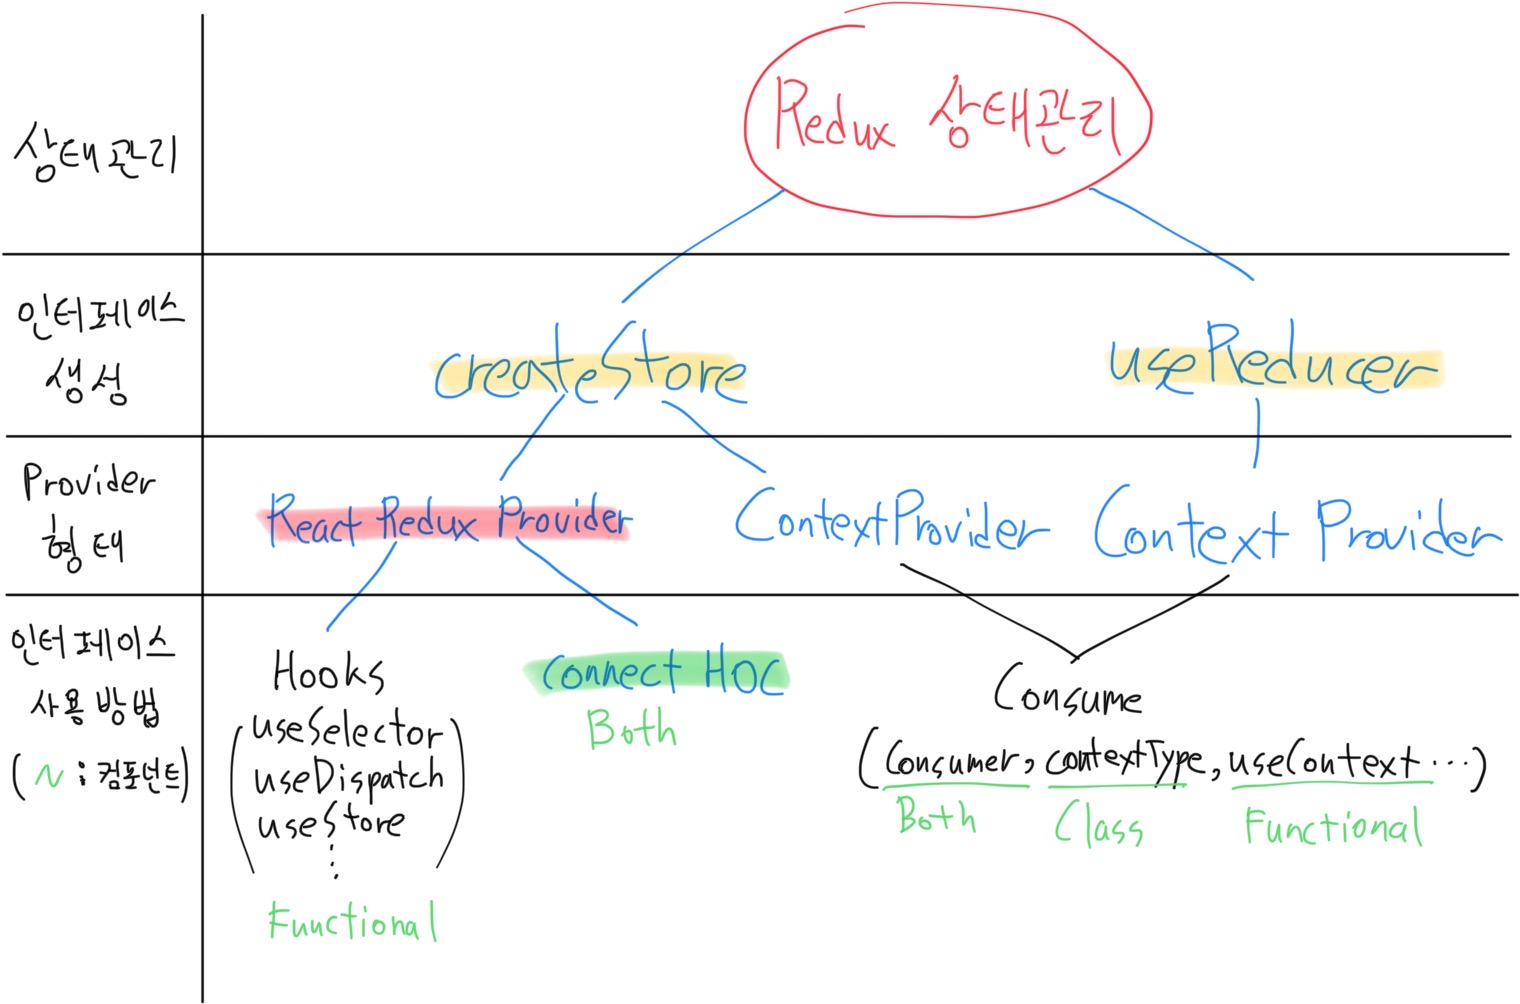 상태관리
Redux 상태관리
인터페이스
생성
createStore
useReducer
Provider
형태
React Redux Provider
ContextProvider
Context Provider
인터페이스
사용 방법
(~ : 컴포넌트)
Hooks
(useSelector
useDispatch
useStore
⋮)
Functional
Connect HOC
Both
Consume
(Consumer, contextType, useContext ...)
Both
Class
Functional